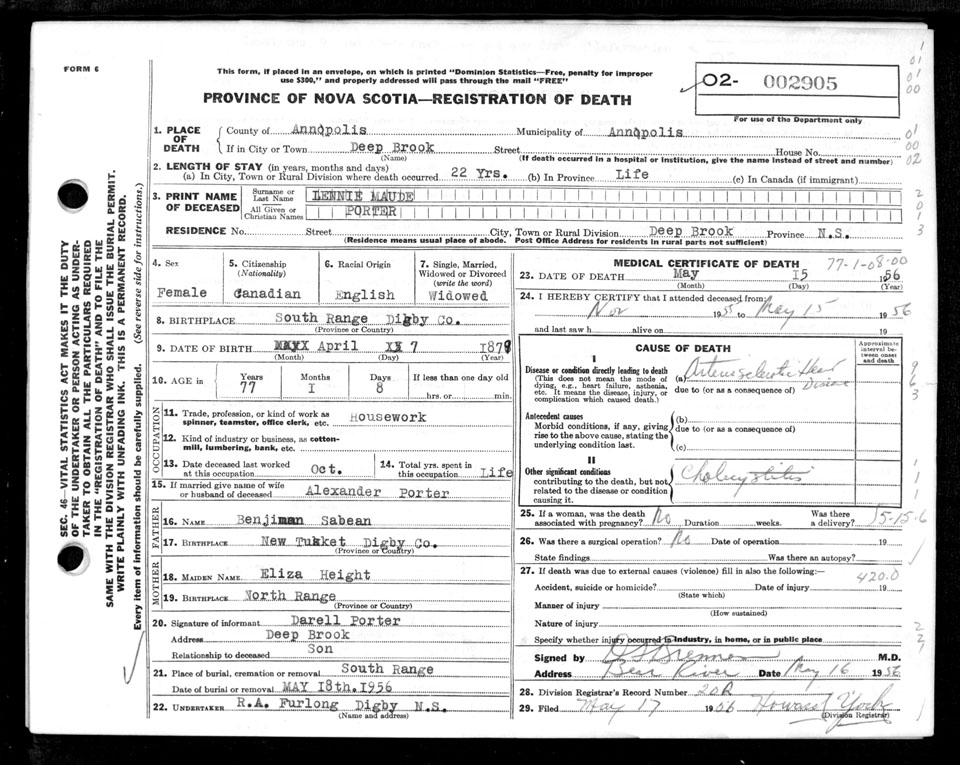 FORM 6
This form, if placed in an envelope, on which is printed "Dominion Statistics—Free, penalty for improper
use $300," and properly addressed will pass through the mail "FREE"
PROVINCE OF NOVA SCOTIA—REGISTRATION OF DEATH
O2- 002905
For use of the Department only
1. PLACE OF DEATH
County of Annopolis Municipality of Annopolis
If in City or Town Deep Brook Street House No.
(Name) (If death occurred in a hospital or institution, give the name instead of street and number)
2. LENGTH OF STAY (in years, months and days)
(a) In City, Town or Rural Division where death occurred 22 Yrs. (b) In Province Life (c) In Canada (if immigrant)
3. PRINT NAME OF DECEASED
Surname or Last Name LENNIE MAUDE
All Given or Christian Names PORTER
RESIDENCE No. Street City, Town or Rural Division Deep Brook Province N.S.
(Residence means usual place of abode. Post Office Address for residents in rural parts not sufficient)
4. Sex Female
5. Citizenship (Nationality) Canadian
6. Racial Origin English
7. Single, Married, Widowed or Divorced (write the word) Widowed
8. BIRTHPLACE South Range Digby Co.
(Province or Country)
9. DATE OF BIRTH MAYX April XX 7 1879
(Month) (Day) (Year)
10. AGE in Years 77 Months I Days 8 If less than one day old
hrs. or min.
OCCUPATION
11. Trade, profession, or kind of work as spinner, teamster, office clerk, etc. Housework
12. Kind of industry or business, as cotton-mill, lumbering, bank, etc.
13. Date deceased last worked at this occupation Oct.
14. Total yrs. spent in this occupation Life
15. If married give name of wife or husband of deceased Alexander Porter
FATHER
16. NAME Benjiman Sabean
17. BIRTHPLACE New Tukket Digby Co.
(Province or Country)
MOTHER
18. MAIDEN NAME Eliza Height
19. BIRTHPLACE North Range
(Province or Country)
20. Signature of informant Darell Porter
Address Deep Brook
Relationship to deceased Son
21. Place of burial, cremation or removal South Range
Date of burial or removal MAY 18th.1956
22. UNDERTAKER R.A. Furlong Digby N.S.
(Name and address)
MEDICAL CERTIFICATE OF DEATH
77-1-08-00
23. DATE OF DEATH May I5 1956
(Month) (Day) (Year)
24. I HEREBY CERTIFY that I attended deceased from:
Nov 1955 to May 15 1956
and last saw h alive on 19
CAUSE OF DEATH
Approximate interval between onset and death
I
Disease or condition directly leading to death
(This does not mean the mode of dying, e.g., heart failure, asthenia, etc. It means the disease, injury, or complication which caused death.)
(a) Arteriosclerotic Heart Disease
due to (or as a consequence of)
Antecedent causes
Morbid conditions, if any, giving rise to the above cause, stating the underlying condition last.
(b)
due to (or as a consequence of)
(c)
II
Other significant conditions
contributing to the death, but not related to the disease or condition causing it.
Cholecystitis
25. If a woman, was the death associated with pregnancy? No Duration weeks. Was there a delivery?
15-15-6
26. Was there a surgical operation? No Date of operation 19
State findings Was there an autopsy?
27. If death was due to external causes (violence) fill in also the following:—
420.0
Accident, suicide or homicide? Date of injury 19
(State which)
Manner of injury
(How sustained)
Nature of injury
Specify whether injury occurred in industry, in home, or in public place
Signed by M.D.
Address Bear River Date May 16 1956
28. Division Registrar's Record Number 20R
29. Filed May 17 1956 Howard York
(Division Registrar)
SEC. 46—VITAL STATISTICS ACT MAKES IT THE DUTY
OF THE UNDERTAKER OR PERSON ACTING AS UNDER-
TAKER TO OBTAIN ALL THE PARTICULARS REQUIRED
IN THE "REGISTRATION OF DEATH" AND TO FILE THE
SAME WITH THE DIVISION REGISTRAR WHO SHALL ISSUE THE BURIAL PERMIT.
WRITE PLAINLY WITH UNFADING INK. THIS IS A PERMANENT RECORD.
Every item of information should be carefully supplied. (See reverse side for instructions.)